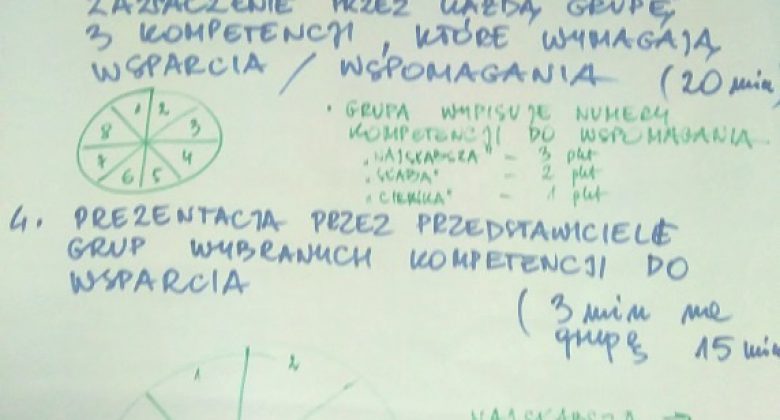 ZAZNACZENIE PRZEZ KAŻDĄ GRUPĘ
3 KOMPETENCJI, KTÓRE WYMAGAJĄ
WSPARCIA / WSPOMAGANIA (20 min
1 2 3 4 5 6 7 8
• GRUPA WYPISUJE NUMERY
KOMPETENCJI DO WSPOMAGANIA
„NAJSŁABSZA" - 3 pkt
„SŁABA" - 2 pkt
- 1 pkt
4. PREZENTACJA PRZEZ PRZEDSTAWICIELI
GRUP WYBRANYCH KOMPETENCJI DO
WSPARCIA
(3 min na
grupę 15 min
1 2
NAJSŁABSZA →